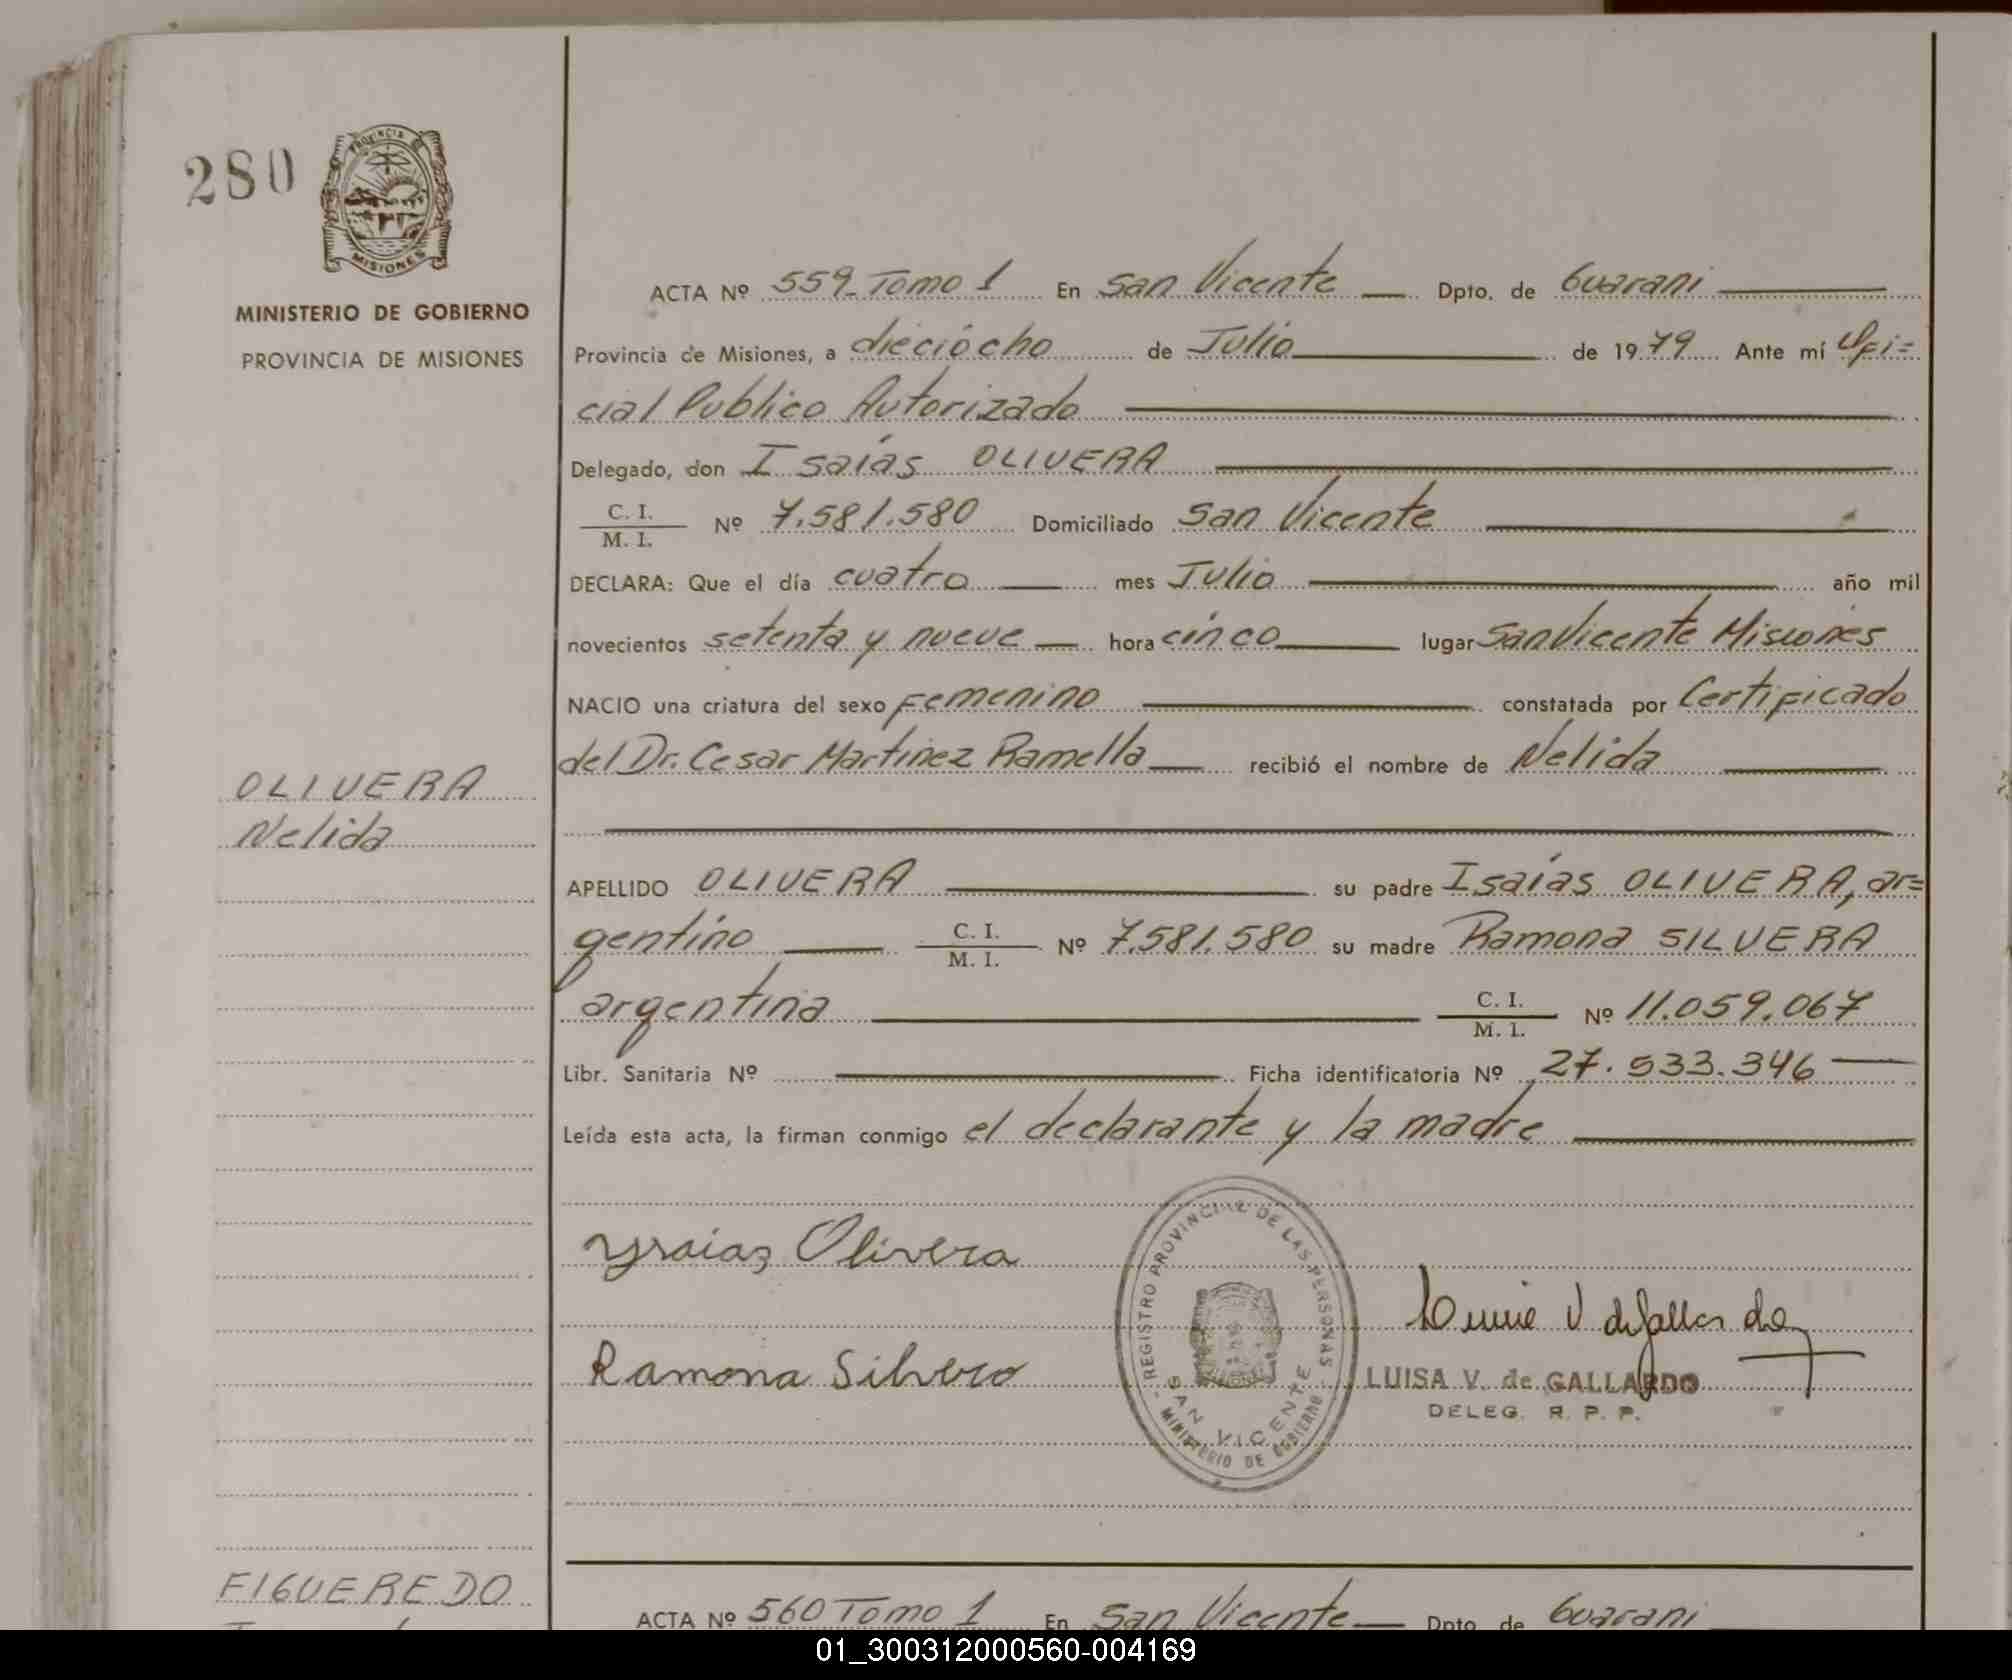 280
PROVINCIA
MISIONES
MINISTERIO DE GOBIERNO
PROVINCIA DE MISIONES
OLIVERA
Nelida
ACTA Nº 559 Tomo 1 En San Vicente Dpto. de Guarani
Provincia de Misiones, a dieciócho de Julio de 1979 Ante mí Ofi=
cial Publico Autorizado
Delegado, don Isaías OLIVERA
C. I.
M. I. Nº 7.581.580 Domiciliado San Vicente
DECLARA: Que el día cuatro mes Julio año mil
novecientos setenta y nueve hora cinco lugar San Vicente Misiones
NACIO una criatura del sexo Femenino constatada por Certificado
del Dr. Cesar Martinez Ramella recibió el nombre de Nelida
APELLIDO OLIVERA su padre Isaías OLIVERA, ar=
gentino C. I.
M. I. Nº 7.581.580 su madre Ramona SILVERA
argentina C. I.
M. I. Nº 11.059.067
Libr. Sanitaria Nº Ficha identificatoria Nº 27.533.346
Leída esta acta, la firman conmigo el declarante y la madre
Ysaias Olivera
Ramona Silvero
REGISTRO PROVINCIAL DE LAS PERSONAS
SAN VICENTE
MINISTERIO DE GOBIERNO
LUISA V. de GALLARDO
DELEG. R. P. P.
FIGUEREDO
ACTA Nº 560 Tomo 1 En San Vicente Dpto. de Guarani
01_300312000560-004169